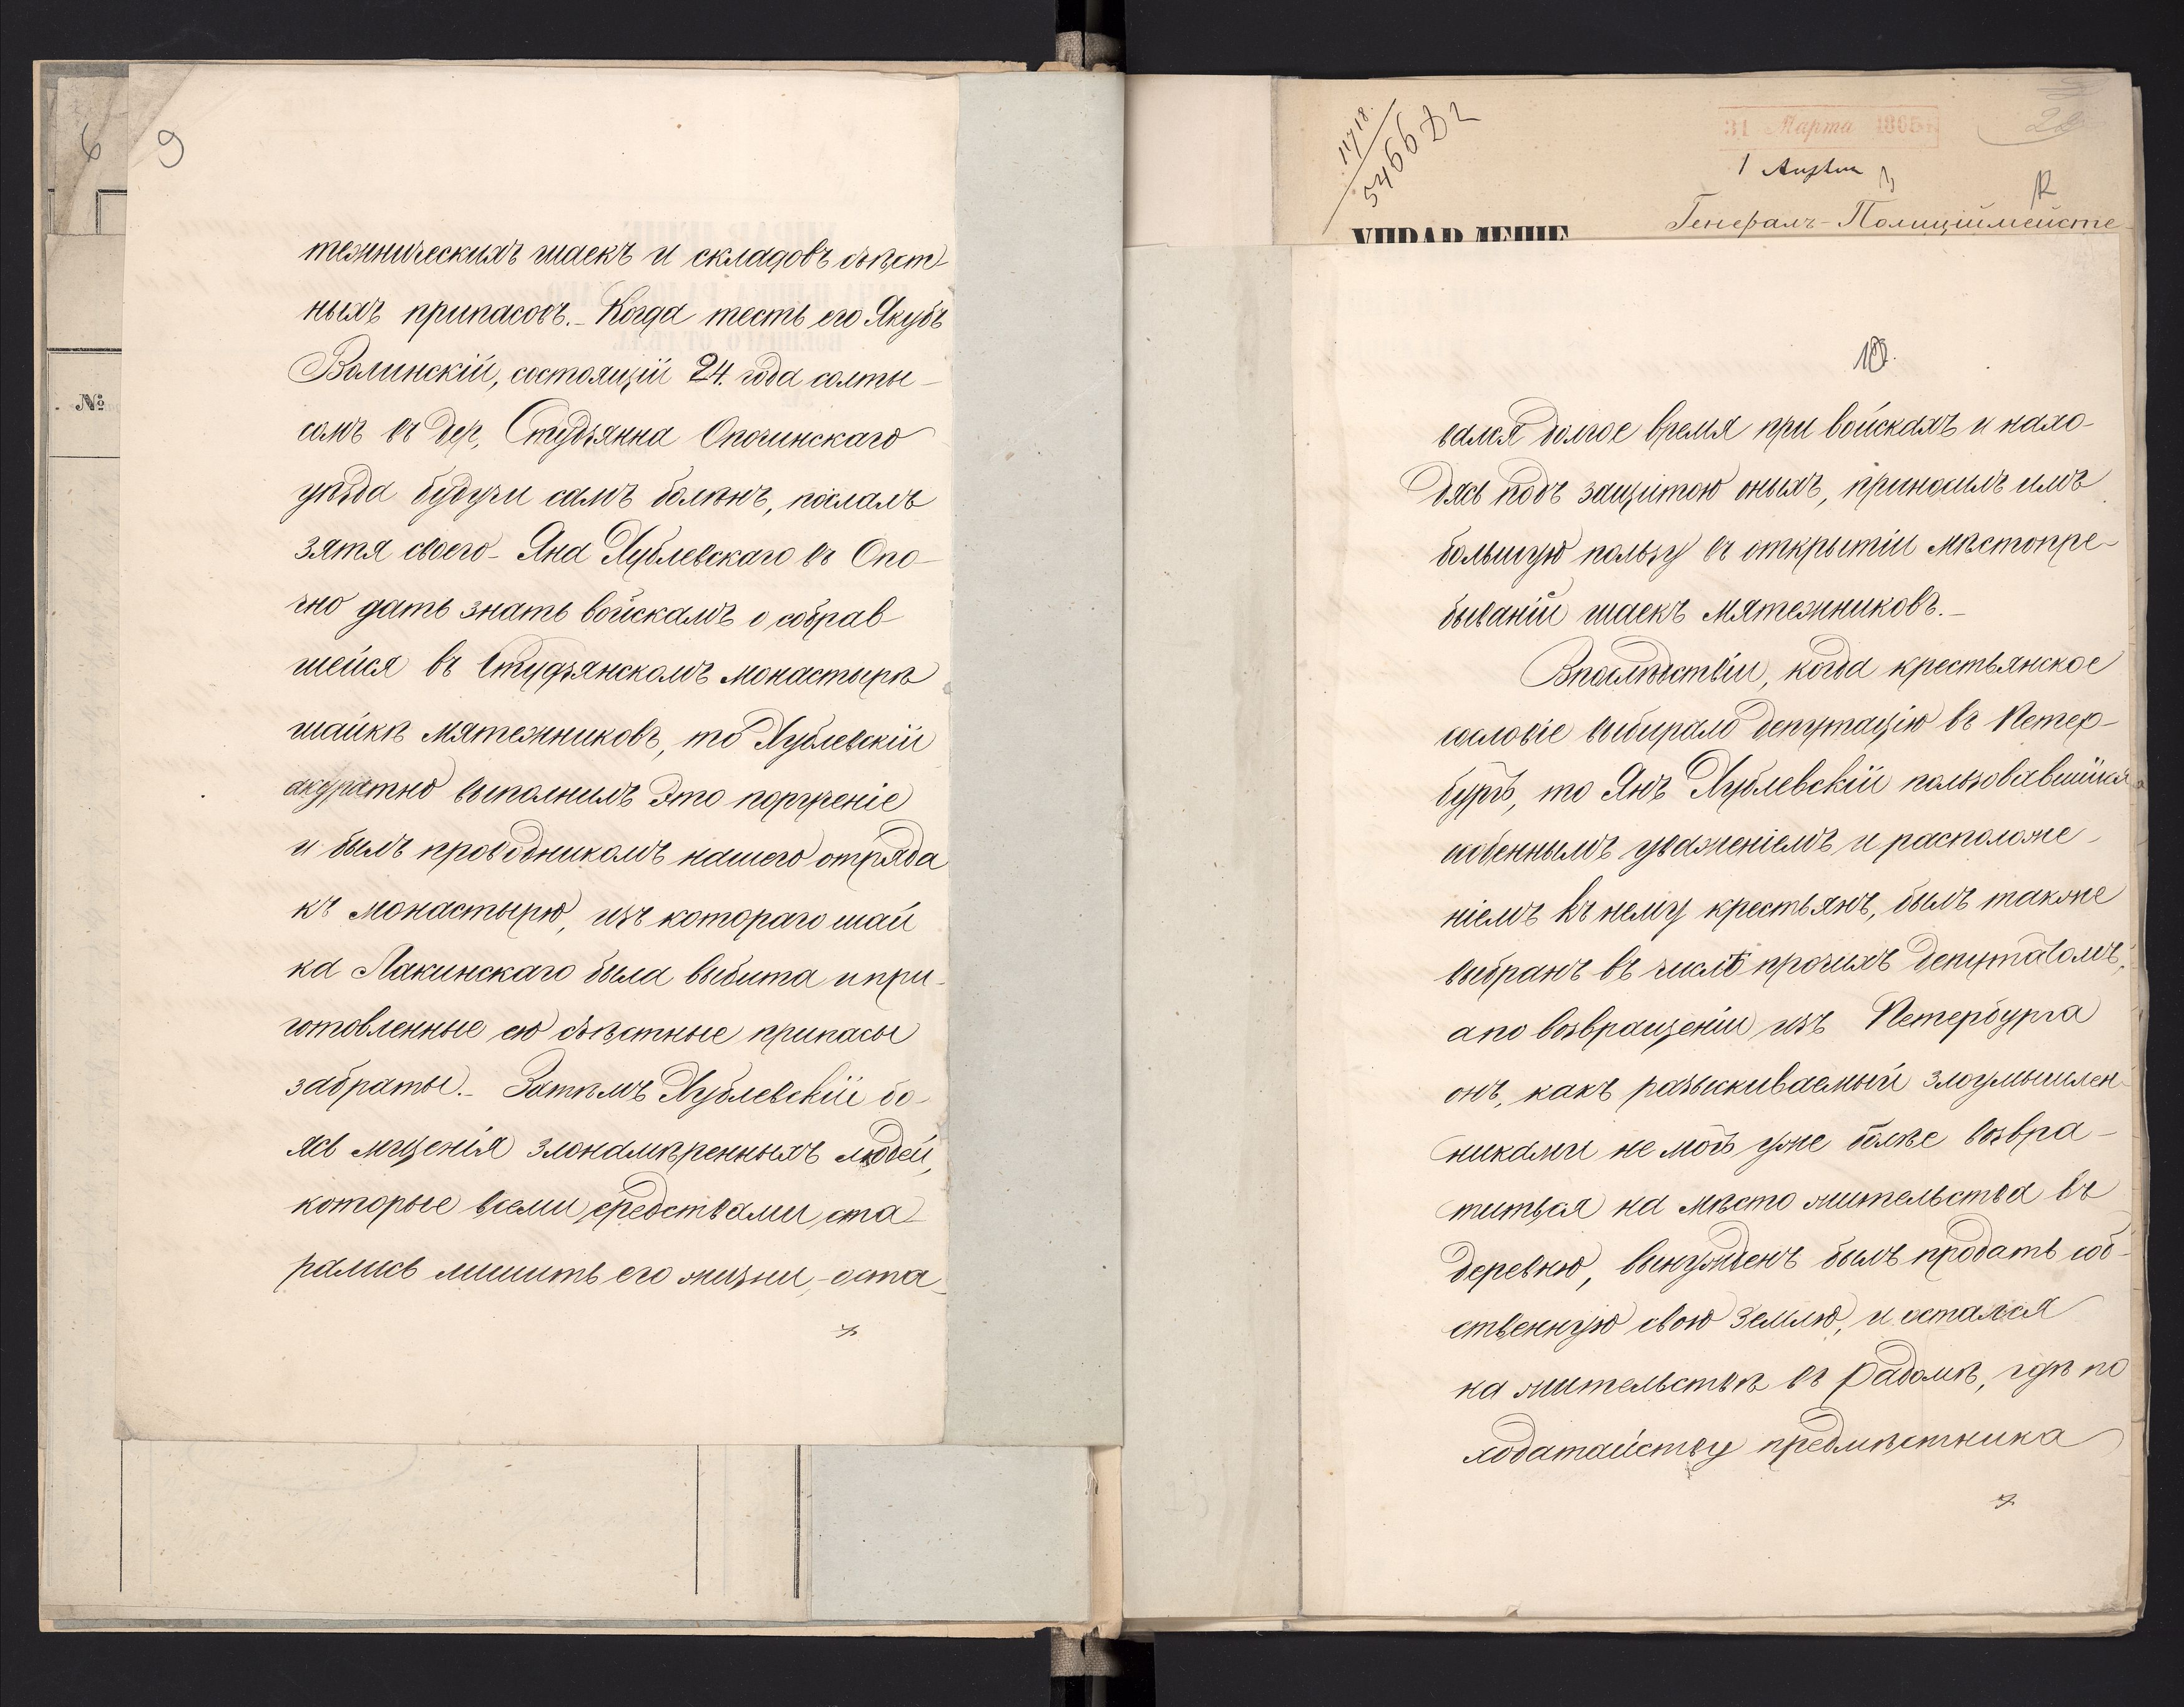 6
9
№
тежническихъ шаекъ и складовъ съѣст-
ныхъ припасовъ.- Когда тесть его Якубъ
Волинскій, состоящій 24. года солты-
сомъ въ дер, Студзянна Опочинскаго
уѣзда будучи самъ боленъ, послалъ
зятя своего- Яна Хублевскаго въ Опо-
чно дать знать войскамъ о собрав-
шейся въ Студзянскомъ монастырѣ
шайкѣ мятежниковъ, то Хублевскій
акуратно выполнилъ это порученіе
и былъ проводникомъ нашего отряда
къ монастырю, изъ котораго шай
ка Лакинскаго была выбита и при-
готовленные ею съѣстные припасы
забраты.- Затѣмъ Хублевскій бо-
ясь мщенія злонамѣренныхъ людей,
которые всеми средствами ста-
рались лишить его жизни,- оста-
11718
5466
31 Марта 1865
1 Апрѣля
Генералъ-Полиціймейсте
УПРАВЛЕНІЕ
10.
вался долгое время при войскахъ и нахо-
дясь подъ защитою оныхъ, приносилъ имъ
большую пользу въ открытіи мѣстопре-
бываній шаекъ мятежниковъ.-
Впослѣдствіи, когда крестьянское
сословіе выбирало депутацію въ Петер-
бургъ, то Янъ Хублевскій пользовавшійся
особеннымъ уваженіемъ и расположе-
ніемъ къ нему крестьянъ, былъ также
выбранъ въ числѣ прочихъ депутатомъ,
а по возвращеніи изъ Петербурга
онъ, какъ разыскиваемый злоумышлен-
никами не могъ уже болѣе возвра-
титься на мѣсто жительства въ
деревню, вынужденъ былъ продать соб-
ственную свою землю, и остался
на жительствѣ въ Радомѣ, гдѣ по
ходатайству предмѣстника